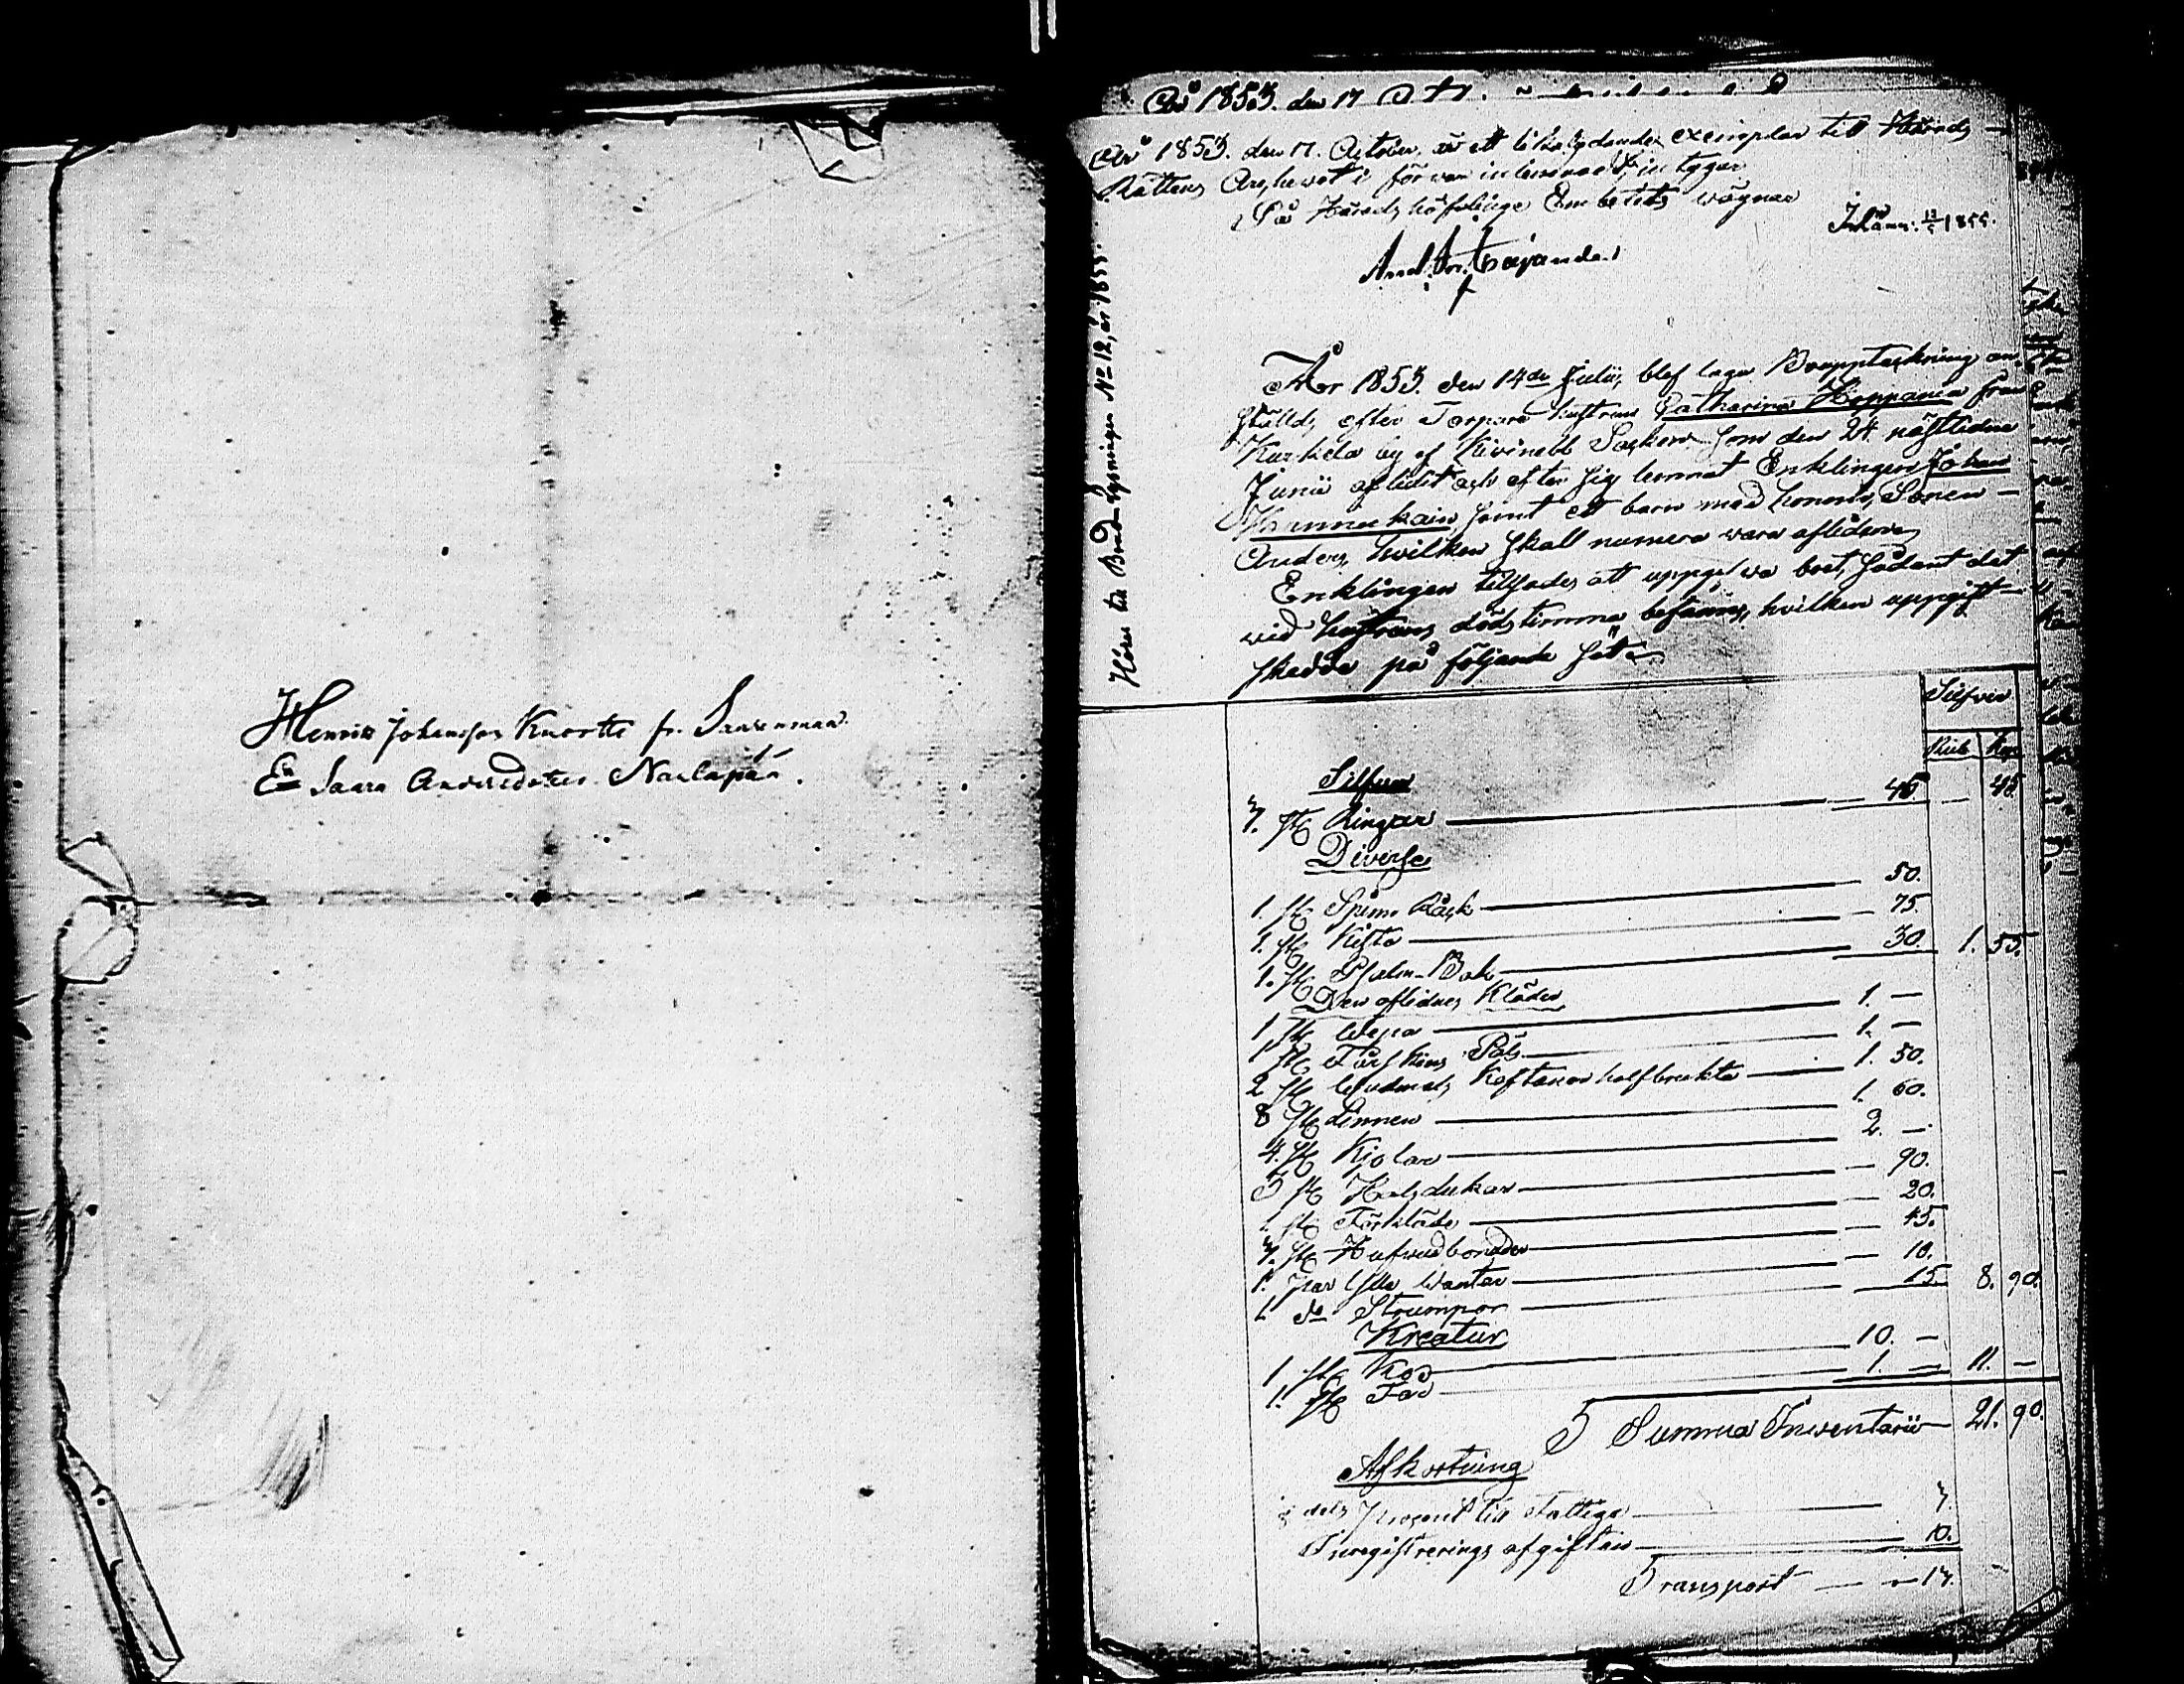 Henrik Johansson Knortti fr. Saarenmaa
En Saara Andersdotter Naulapää.
År 1853. den 17
År 1853. den 17. October, är ett lika lydande exemplar till Härads
Rättens Archivet i förvar inlemnadt, intygar
På Häradshöfdinge Embetets vägnar
Inlämn: 13/5 1855.
Hörer till Bevd. Lysningen No 12, år 1855.
År 1853. den 14de Julii, blef laga Bouppteckning an-
ställd, efter Torpare hustrun Catharina Hyppänen från
Kurkela by af Kivinebb Socken som den 24 nästlidne
Junii aflidit och efter sig lemnat Enklingen Johan
samt ett barn med honom, Sonen
Anders, hvilken skall numera vara afliden
Enklingen tillsades att uppgifva boet, sådant det
vid hustruns dödstimma befanns, hvilken uppgift
skedde på följande sätt
Silfver
Rub. Kop.
Silfver
7. st. Ringar — 45. — 45.
Diverse
1. st. Spinn Råck — 50.
1. st. Kista — 75.
1. st. Psalm-Bok — 30. 1. 55.
Den aflidnes Kläder
1 st. — 1. —
1 st. Fårskins Päls — 1. —
2 st. Wadmals Koftanor halfbrukta — 1. 50.
8 st. Linnen — 1. 60.
4. st. Kjolar — 2. —
5 st. Halsdukar — 90.
1. st. Förkläde — 20.
7. st. Hufvudbonader — 45.
1. par Ylle Vantar — 10.
1. do Strumpor — 15. 8. 90.
Kreatur
1 st. Ko — 10. —
1. st. Får — 1. — 11. —
Summa Inventarii 21. 90.
Afkortning
dels Procent till Fattiga — 7.
Inregistrerings afgiften — 10.
Transport — 17.